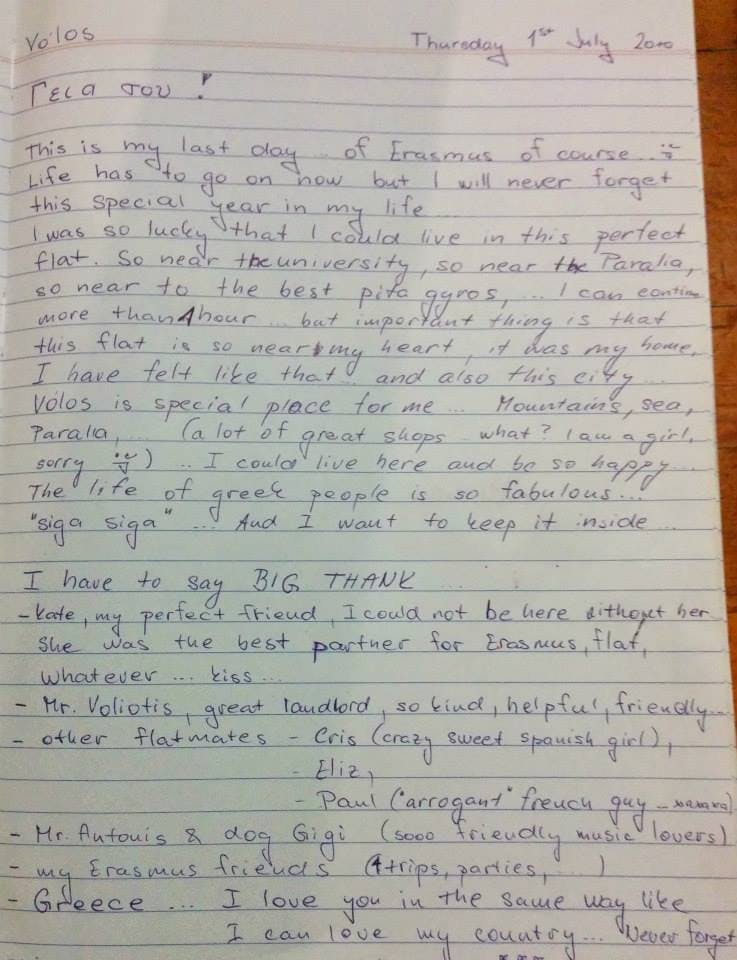 Vólos Thursday 1st July 2010
Γεια σου!
This is my last day... of Erasmus of course...
Life has to go on now but I will never forget
this special year in my life...
I was so lucky that I could live in this perfect
flat. So near the university, so near the Paralia,
so near to the best pita gyros,... I can continue
more than 1 hour... but important thing is that
this flat is so near my heart, it was my home.
I have felt like that... and also this city...
Vólos is special place for me... Mountains, sea,
Paralia,... (a lot of great shops - what? I am a girl,
sorry ) .. I could live here and be so happy...
The life of greek people is so fabulous...
"siga siga" ... And I want to keep it inside...
I have to say BIG THANK ...
- Kate, my perfect friend, I could not be here without her
She was the best partner for Erasmus, flat,
whatever ... kiss...
- Mr. Voliotis, great landlord, so kind, helpful, friendly...
- other flatmates - Cris (crazy sweet spanish girl),
- Eliz,
- Paul ("arrogant" french guy - )
- Mr. Antonis & dog Gigi (sooo friendly music lovers)
- my Erasmus friends (+trips, parties, ...)
- Greece ... I love you in the same way like
I can love my country... Never forget